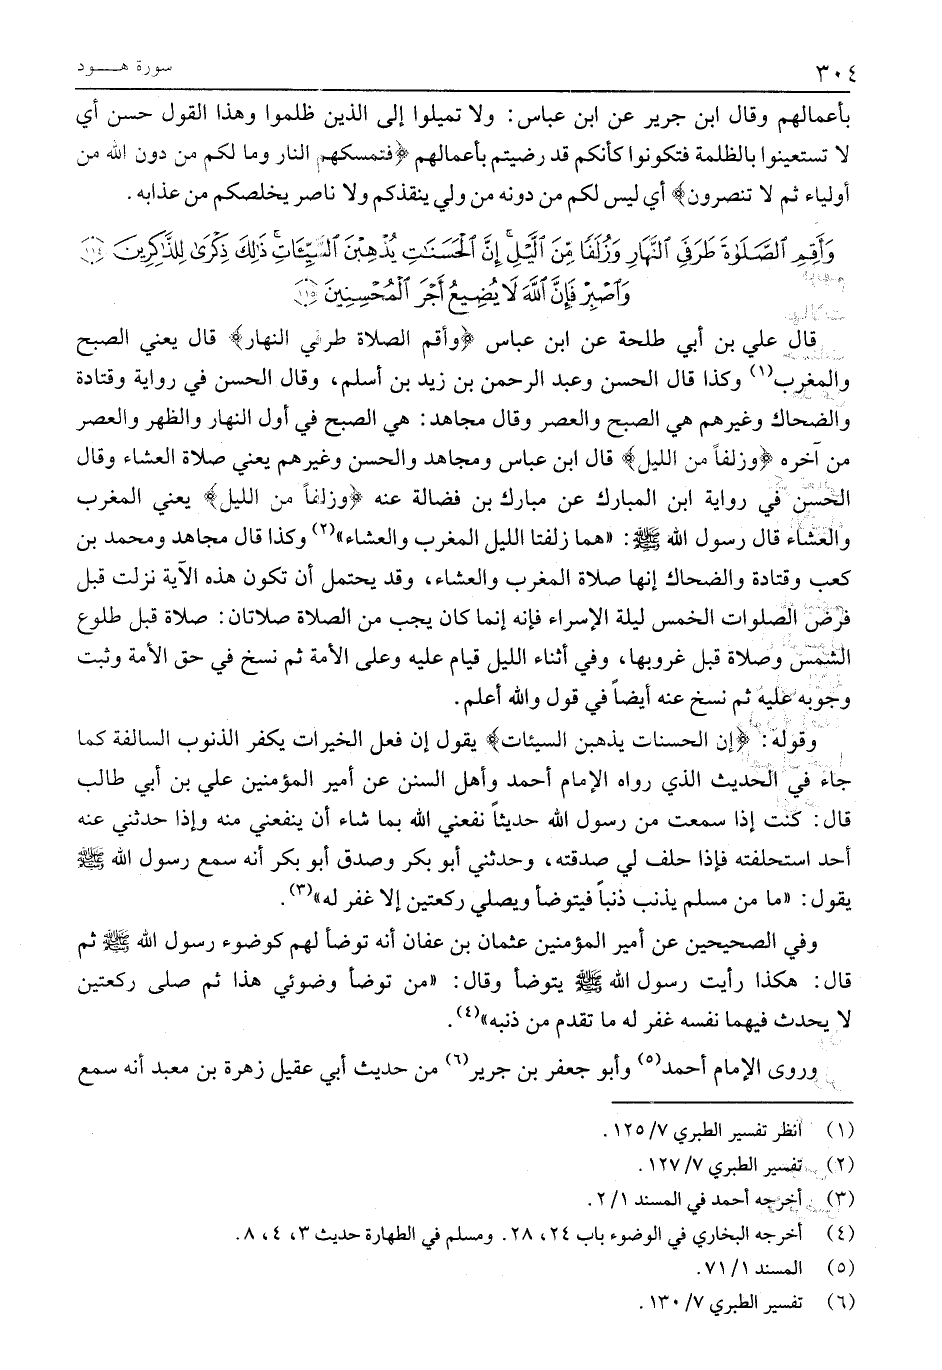 ٣٠٤
سورة هـــود
بأعمالهم وقال ابن جرير عن ابن عباس: ولا تميلوا إلى الذين ظلموا وهذا القول حسن أي
لا تستعينوا بالظلمة فتكونوا كأنكم قد رضيتم بأعمالهم ﴿فتمسكهم النار وما لكم من دون الله من
أولياء ثم لا تنصرون﴾ أي ليس لكم من دونه من ولي ينقذكم ولا ناصر يخلصكم من عذابه.
وَأَقِمِ ٱلصَّلَوٰةَ طَرَفَيِ ٱلنَّهَارِ وَزُلَفًا مِّنَ ٱلَّيْلِۚ إِنَّ ٱلْحَسَنَٰتِ يُذْهِبْنَ ٱلسَّيِّـَٔاتِۚ ذَٰلِكَ ذِكْرَىٰ لِلذَّٰكِرِينَ ﴿١١٤﴾
وَٱصْبِرْ فَإِنَّ ٱللَّهَ لَا يُضِيعُ أَجْرَ ٱلْمُحْسِنِينَ ﴿١١٥﴾
قال علي بن أبي طلحة عن ابن عباس ﴿وأقم الصلاة طرفي النهار﴾ قال يعني الصبح
والمغرب(١) وكذا قال الحسن وعبد الرحمن بن زيد بن أسلم، وقال الحسن في رواية وقتادة
والضحاك وغيرهم هي الصبح والعصر وقال مجاهد: هي الصبح في أول النهار والظهر والعصر
من آخره ﴿وزلفاً من الليل﴾ قال ابن عباس ومجاهد والحسن وغيرهم يعني صلاة العشاء وقال
الحسن في رواية ابن المبارك عن مبارك بن فضالة عنه ﴿وزلفاً من الليل﴾ يعني المغرب
والعشاء قال رسول الله ﷺ: «هما زلفتا الليل المغرب والعشاء»(٢) وكذا قال مجاهد ومحمد بن
كعب وقتادة والضحاك إنها صلاة المغرب والعشاء، وقد يحتمل أن تكون هذه الآية نزلت قبل
فرض الصلوات الخمس ليلة الإسراء فإنه إنما كان يجب من الصلاة صلاتان: صلاة قبل طلوع
الشمس وصلاة قبل غروبها، وفي أثناء الليل قيام عليه وعلى الأمة ثم نسخ في حق الأمة وثبت
وجوبه عليه ثم نسخ عنه أيضاً في قول والله أعلم.
وقوله: ﴿إن الحسنات يذهبن السيئات﴾ يقول إن فعل الخيرات يكفر الذنوب السالفة كما
جاء في الحديث الذي رواه الإمام أحمد وأهل السنن عن أمير المؤمنين علي بن أبي طالب
قال: كنت إذا سمعت من رسول الله حديثاً نفعني الله بما شاء أن ينفعني منه وإذا حدثني عنه
أحد استحلفته فإذا حلف لي صدقته، وحدثني أبو بكر وصدق أبو بكر أنه سمع رسول الله ﷺ
يقول: «ما من مسلم يذنب ذنباً فيتوضأ ويصلي ركعتين إلا غفر له»(٣).
وفي الصحيحين عن أمير المؤمنين عثمان بن عفان أنه توضأ لهم كوضوء رسول الله ﷺ ثم
قال: هكذا رأيت رسول الله ﷺ يتوضأ وقال: «من توضأ وضوئي هذا ثم صلى ركعتين
لا يحدث فيهما نفسه غفر له ما تقدم من ذنبه»(٤).
وروى الإمام أحمد(٥) وأبو جعفر بن جرير(٦) من حديث أبي عقيل زهرة بن معبد أنه سمع
(١) انظر تفسير الطبري ٧/ ١٢٥.
(٢) تفسير الطبري ٧/ ١٢٧.
(٣) أخرجه أحمد في المسند ١/ ٢.
(٤) أخرجه البخاري في الوضوء باب ٢٤، ٢٨. ومسلم في الطهارة حديث ٣، ٤، ٨.
(٥) المسند ١/ ٧١.
(٦) تفسير الطبري ٧/ ١٣٠.